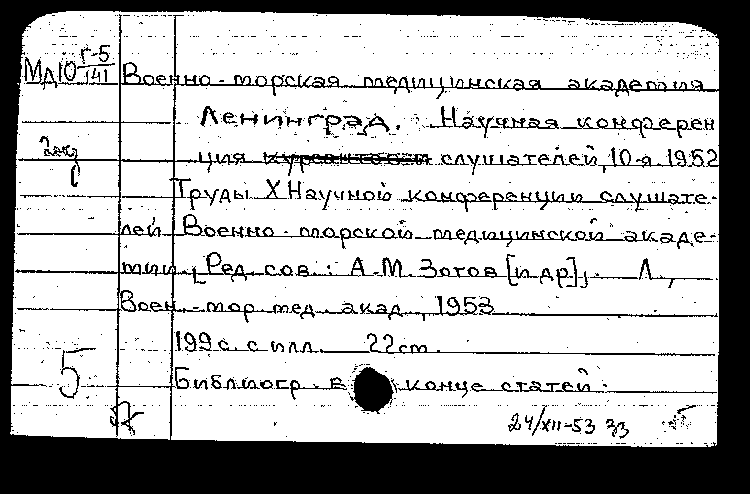 МД10 Г-5/141 Военно-морская медицинская академия
Ленинград. Научная конферен
2 экз ция курсантови слушателей, 10-я. 1952
Труды X Научной конференции слушате-
лей Военно-морской медицинской акаде-
мии. [Ред. сов.: А.М. Зотов [и др]]. Л.,
Воен.-мор. мед. акад., 1953
199 с. с илл. 22 cm.
5 Библиогр. в конце статей.
24/XII-53 зз